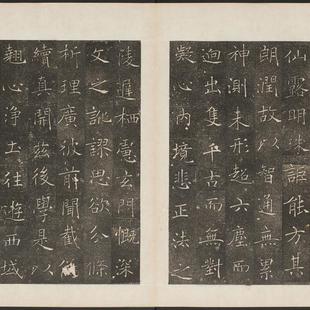 仙露明珠詎能方其
朗潤故以智通無累
神測未形超六塵而
迥出隻千古而無對
凝心內境悲正法之
陵遲栖慮玄門慨深
文之訛謬思欲分條
析理廣彼前聞截偽
續真開茲後學是以
翹心淨土往遊西域